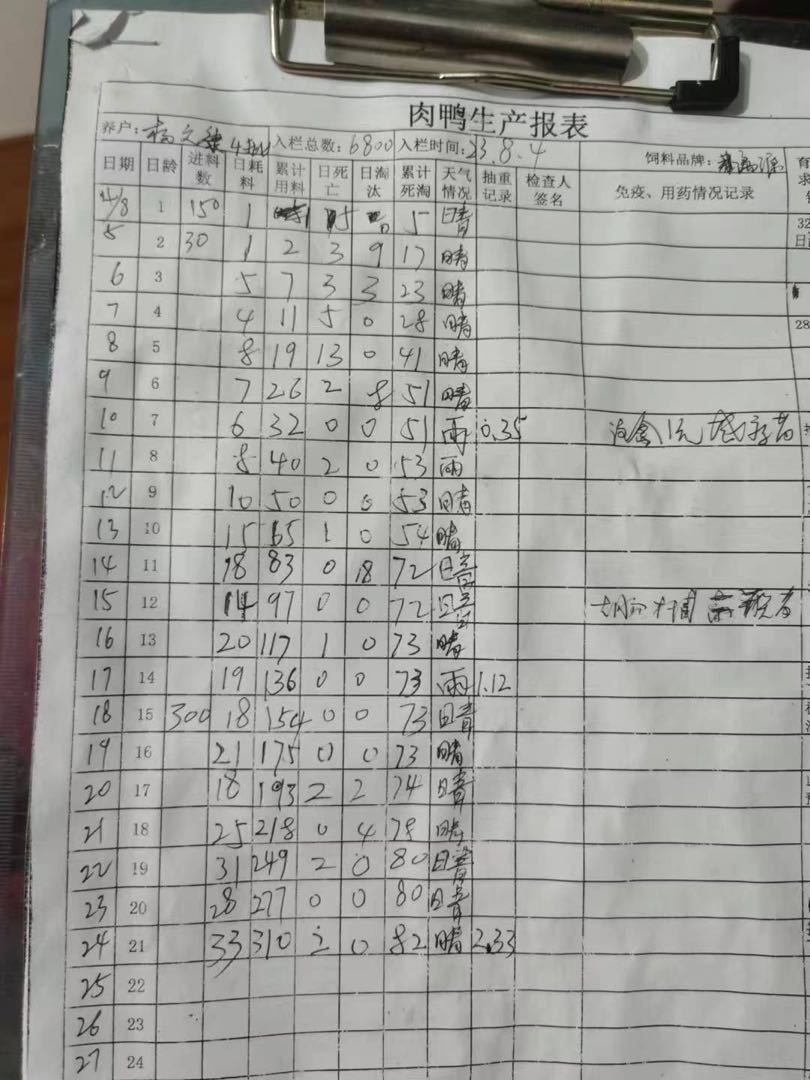 肉鸭生产报表
养户: 杨 4批 入栏总数: 6800 入栏时间: 23.8.4 饲料品牌:
日期 日龄 进料数 日耗料 累计用料 日死亡 日淘汰 累计死淘 天气情况 抽重记录 检查人签名 免疫、用药情况记录
4/8 1 150 1 5 5 晴
5 2 30 1 2 3 9 17 晴
6 3 5 7 3 3 23 晴
7 4 4 11 5 0 28 晴 28
8 5 8 19 13 0 41 晴
9 6 7 26 2 8 51 晴
10 7 6 32 0 0 51 雨 0.35
11 8 8 40 2 0 53 雨
12 9 10 50 0 0 53 晴
13 10 15 65 1 0 54 晴
14 11 18 83 0 18 72 晴
15 12 14 97 0 0 72 晴
16 13 20 117 1 0 73 晴
17 14 19 136 0 0 73 雨 1.12
18 15 300 18 154 0 0 73 晴
19 16 21 175 0 0 73 晴
20 17 18 193 2 2 74 晴
21 18 25 218 0 4 78 晴
22 19 31 249 2 0 80 晴
23 20 28 277 0 0 80 晴
24 21 33 310 2 0 82 晴 2.33
25 22
26 23
27 24